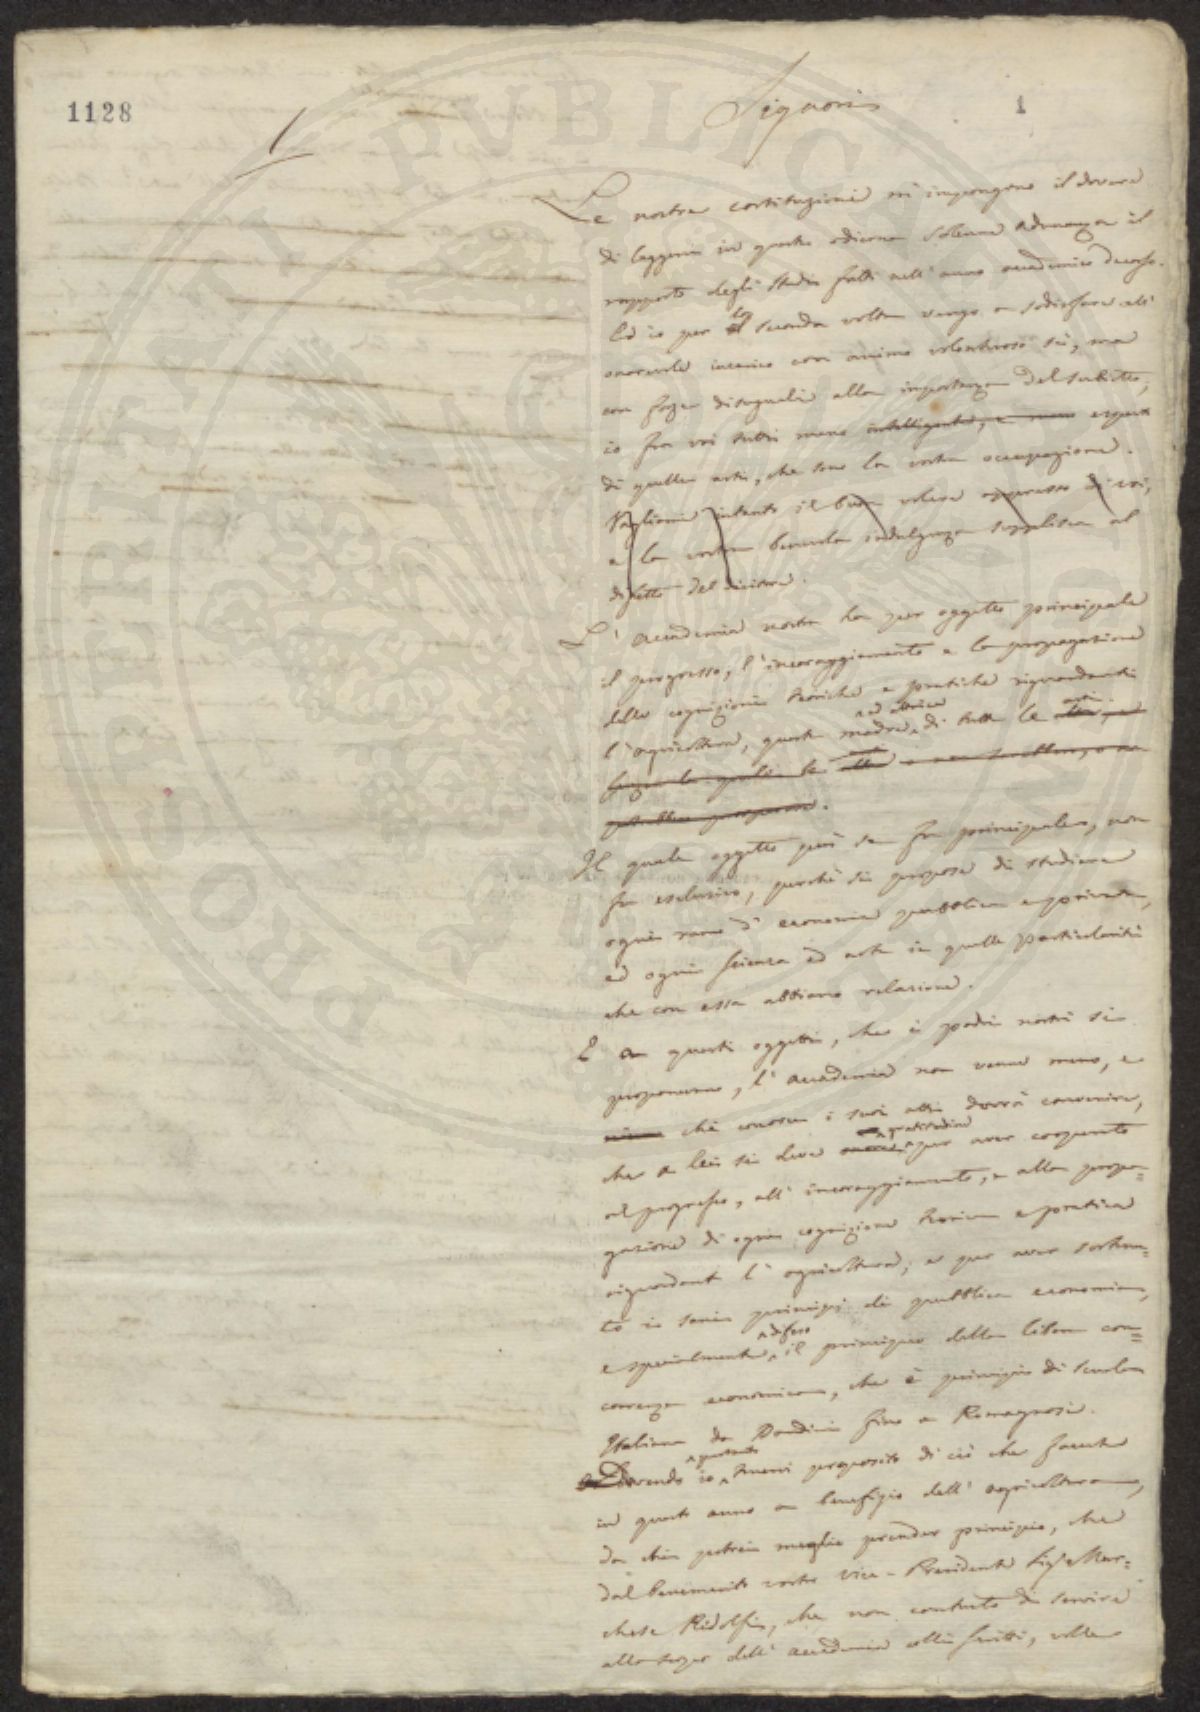 1128
1
Signori
Le nostre costituzioni m'impongono il dovere
di leggervi in questa odierna solenne adunanza il
rapporto degli studi fatti nell'anno accademico decorso.
Ed io per la seconda volta vengo a sodisfare all'
onorevole incarico con animo volenteroso sì, ma
con forze diseguali alla importanza del subietto,
io fra voi tutti meno intelligente, e meno esperto
di quelle arti, che sono la vostra occupazione.
Vagliami intanto il buon volere appresso di voi,
e la vostra benevola indulgenza supplisca al
difetto del dicitore.
L'Accademia nostra ha per oggetto principale
il progresso, l'incoraggiamento e la propagazione
delle cognizioni teoriche e pratiche riguardanti
l'agricoltura, questa madre ed altrice di tutte le arti
Il quale oggetto però se fu principale, non
fu esclusivo, perchè si propose di studiare
ogni ramo d'economia pubblica e privata,
ed ogni scienza ed arte in quelle particolarità
che con essa abbiano relazione.
E a questi oggetti, che i padri nostri si
proponevano, l'Accademia non venne meno, e
chi conosce i suoi atti dovrà convenire,
che a lei si deve gratitudine per aver cooperato
al progresso, all'incoraggiamento, e alla propa=
gazione di ogni cognizione teorica e pratica
riguardante l'agricoltura; e per aver sostenu=
to i sani principj di pubblica economia,
e specialmente difeso il principio della libera con=
correnza economica, che è principio di scuola
Italiana da Bandini fino a Romagnosi.
Dovendo io pertanto tenervi proposito di ciò che faceste
in quest'anno a benefizio dell'agricoltura,
da chi potrei meglio prender principio, che
dal benemerito vostro Vice-Presidente Sig.e Mar=
chese Ridolfi, che non contento di servire
allo scopo dell'Accademia colli scritti, volle